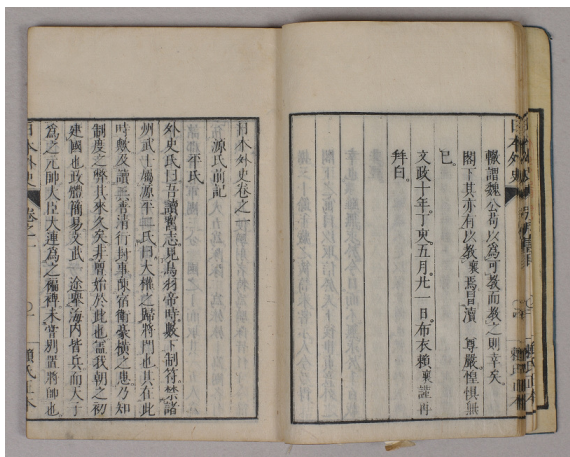 輙謂魏公苟以為可教而教之則幸矣
閣下其亦有以教襄焉冒瀆尊嚴惶惧無
已
文政十年丁亥五月廿一日布衣賴襄謹再
拜白
日本外史卷之一
源氏前記
平氏
外史氏曰吾讀舊志見鳥羽帝時數下制符禁諸
州武士屬源平二氏曰大權之歸將門也其在此
時歟及讀三善清行封事陳宿衛豪橫之患乃知
制度之弊其來久矣非嘗始於此也蓋我朝之初
建國也政體簡易文武一途舉海内皆兵而天子
為之元帥大臣大連為之褊裨未嘗別置將帥也
日本外史
卷之一
賴氏正本